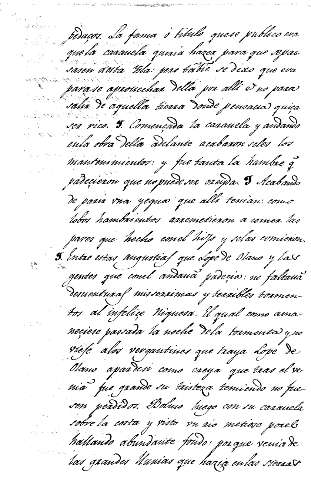 pedaços. La fama ò titulo que se publico era
que la carauela queria hazer para que si passa
sen en esta Isla: pero tãbiẽ se dezia que era
para se aprouechar della por alli è no para
salir de aquella tierra donde pensaua quiça
ser rico. ¶. Començada la carauela y andando
en la obra della adelante acabaron seles los
mantenimientos: y fue tanta la hambre q̃
padecieron que no puede ser creyda. ¶ Acabando
de parir vna yegua que alli tenian: como
lobos hambrientos arremetieron a comer las
pares que hecho con el hijo y se las comieron.
¶. Entre estas angustias que Lope de Olano y las
gentes que con el andauã padezia: no faltauã
desuenturas miserrimas y terribles tormen-
tos al infelice Niquesa. El qual como ama-
neciese passada la noche de la tormenta y no
viese a los vergantines que traya Lope de
Olano aparescer como creya que tras el ve
niã fue grande su tristeza temiendo no fue
sen perdidos. Boluio luego con su carauela
sobre la costa y visto vn rio metiose por el
hallando abundante fondo: porque venia de
las grandes lluuias que hazia en las sierras